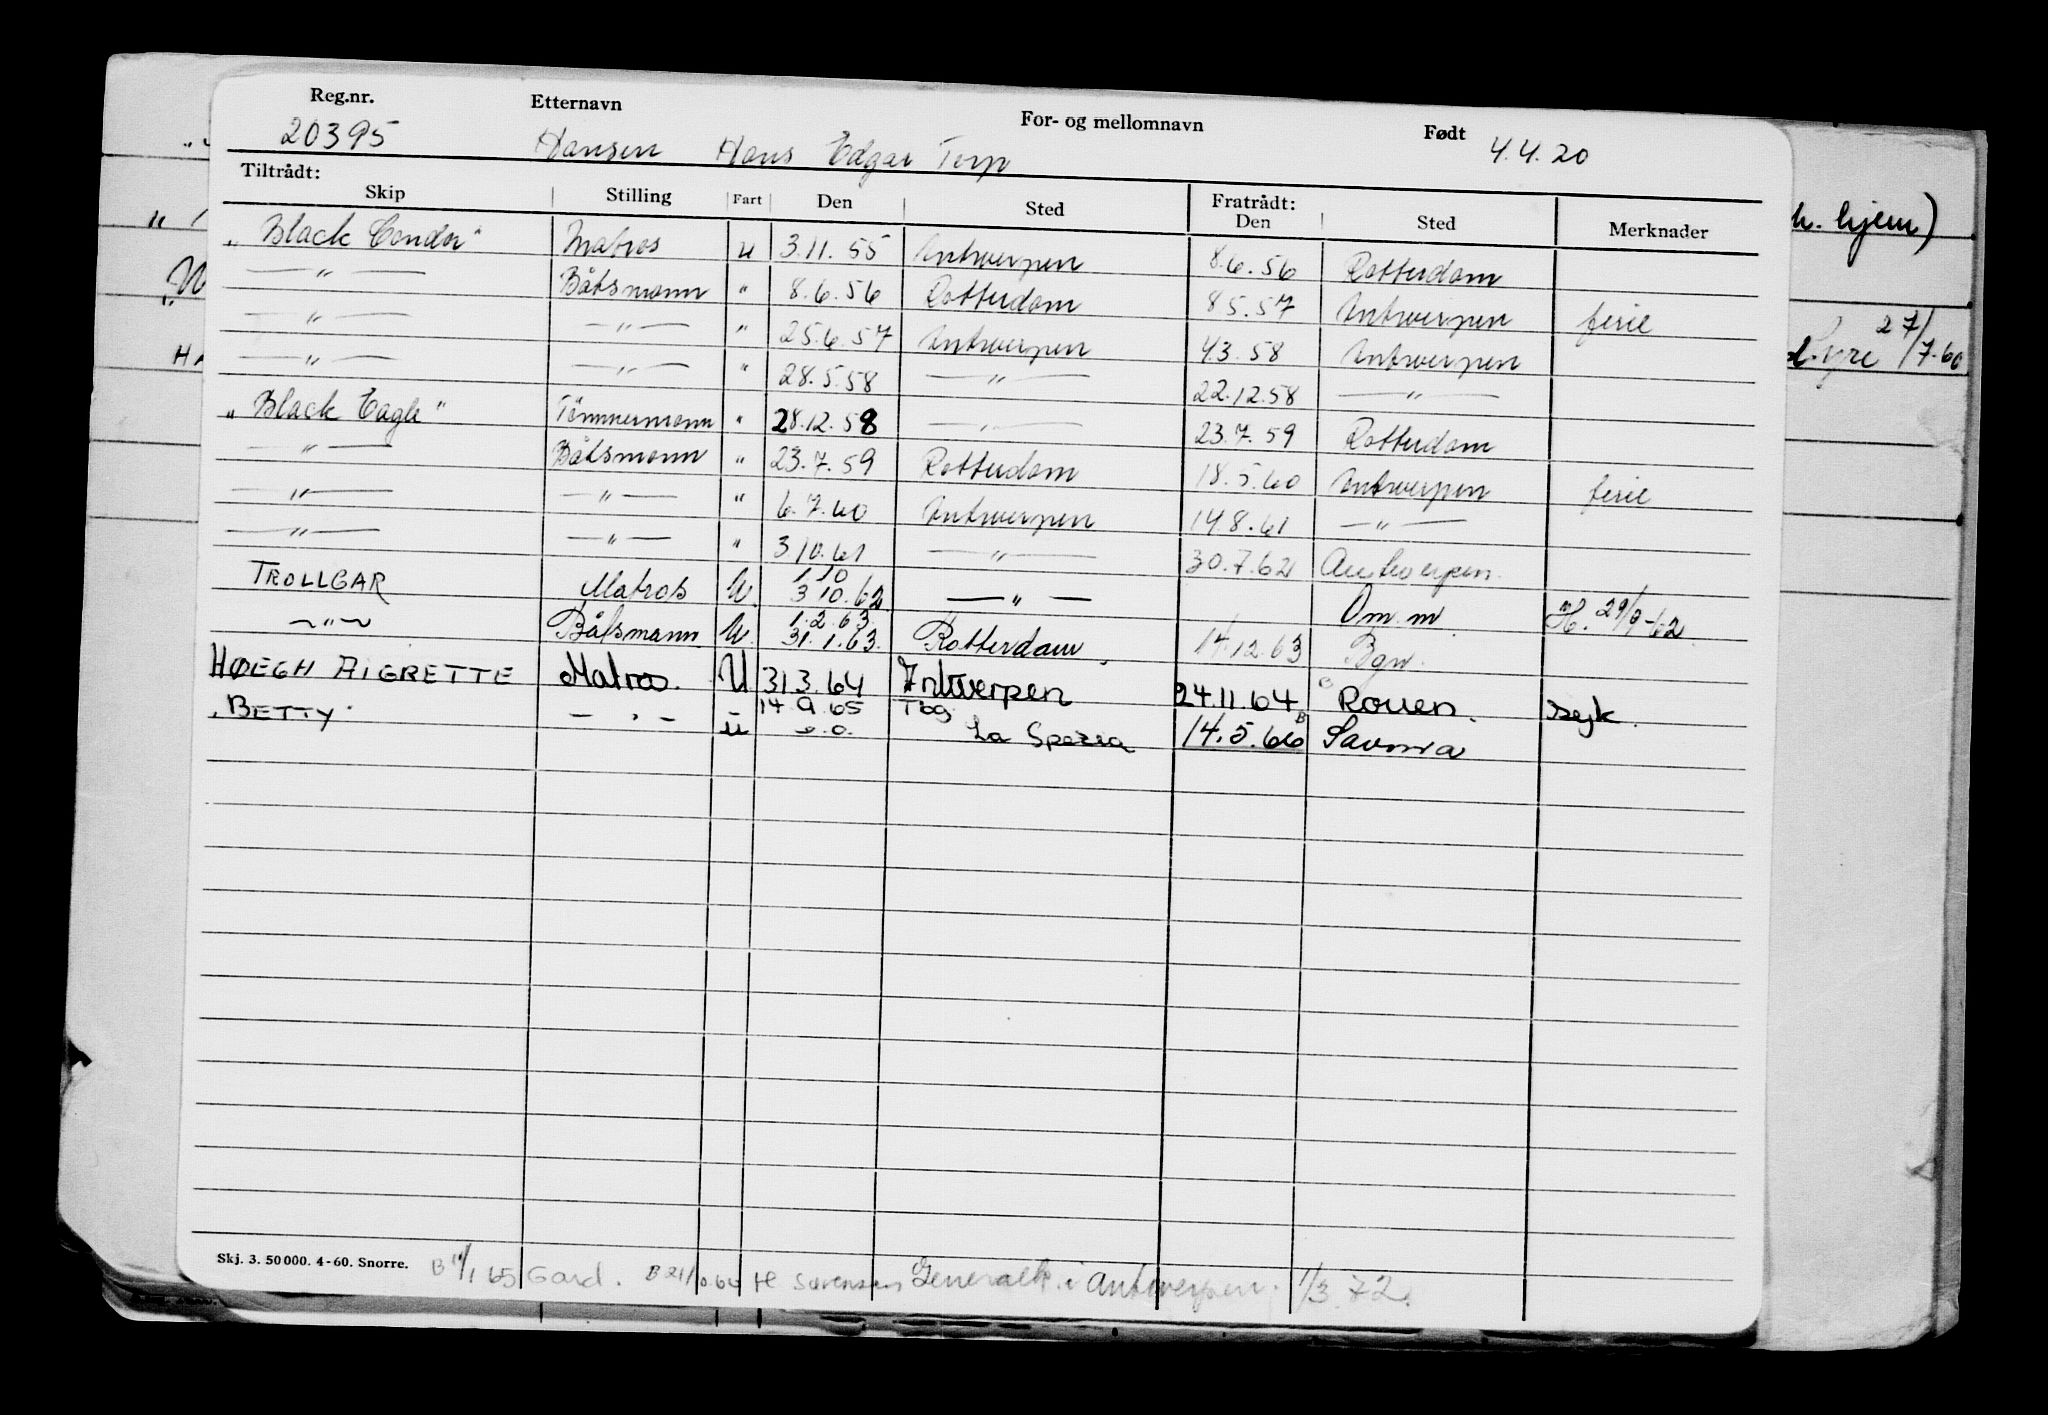 Reg.nr. Etternavn For- og mellomnavn Født
20395 Hansen Hans Edgar Torp 4.4.20
Tiltrådt: Fratrådt:
Skip Stilling Fart Den Sted Den Sted Merknader
„Black Condor" Matros u 3.11.55 Antwerpen 8.6.56 Rotterdam
—"— Båtsmann " 8.6.56 Rotterdam 8.5.57 Antwerpen ferie
—"— —"— " 25.6.57 Antwerpen 4.3.58 Antwerpen
—"— —"— " 28.5.58 —"— 22.12.58 —"—
„Black Eagle" Tömmermann " 28.12.58 —"— 23.7.59 Rotterdam
—"— Båtsmann " 23.7.59 Rotterdam 18.5.60 Antwerpen ferie
—"— —"— " 6.7.60 Antwerpen 14.8.61 —"—
—"— —"— " 3.10.61 —"— 30.7.62 Antwerpen.
TROLLGAR Matros U. 1.10 3.10.62 —"— Om.m. H. 29/9-62
—"— Båtsmann. U. 1.2.63 31.1.63. Rotterdam. 14.12.63 Bgn.
HØEGH AIGRETTE Matros. U 31.3.64 Antwerpen 24.11.64 B Rouen. syk.
„BETTY" — " — u 14.9.65 Tbg. La Spezia 14.5.66 B Savona
Skj. 3. 50000. 4-60. Snorre. B 11/1 65 Gard. H Sørensen Generalk. i Antwerpen. 1/3.72.
hjem)
27/7.60